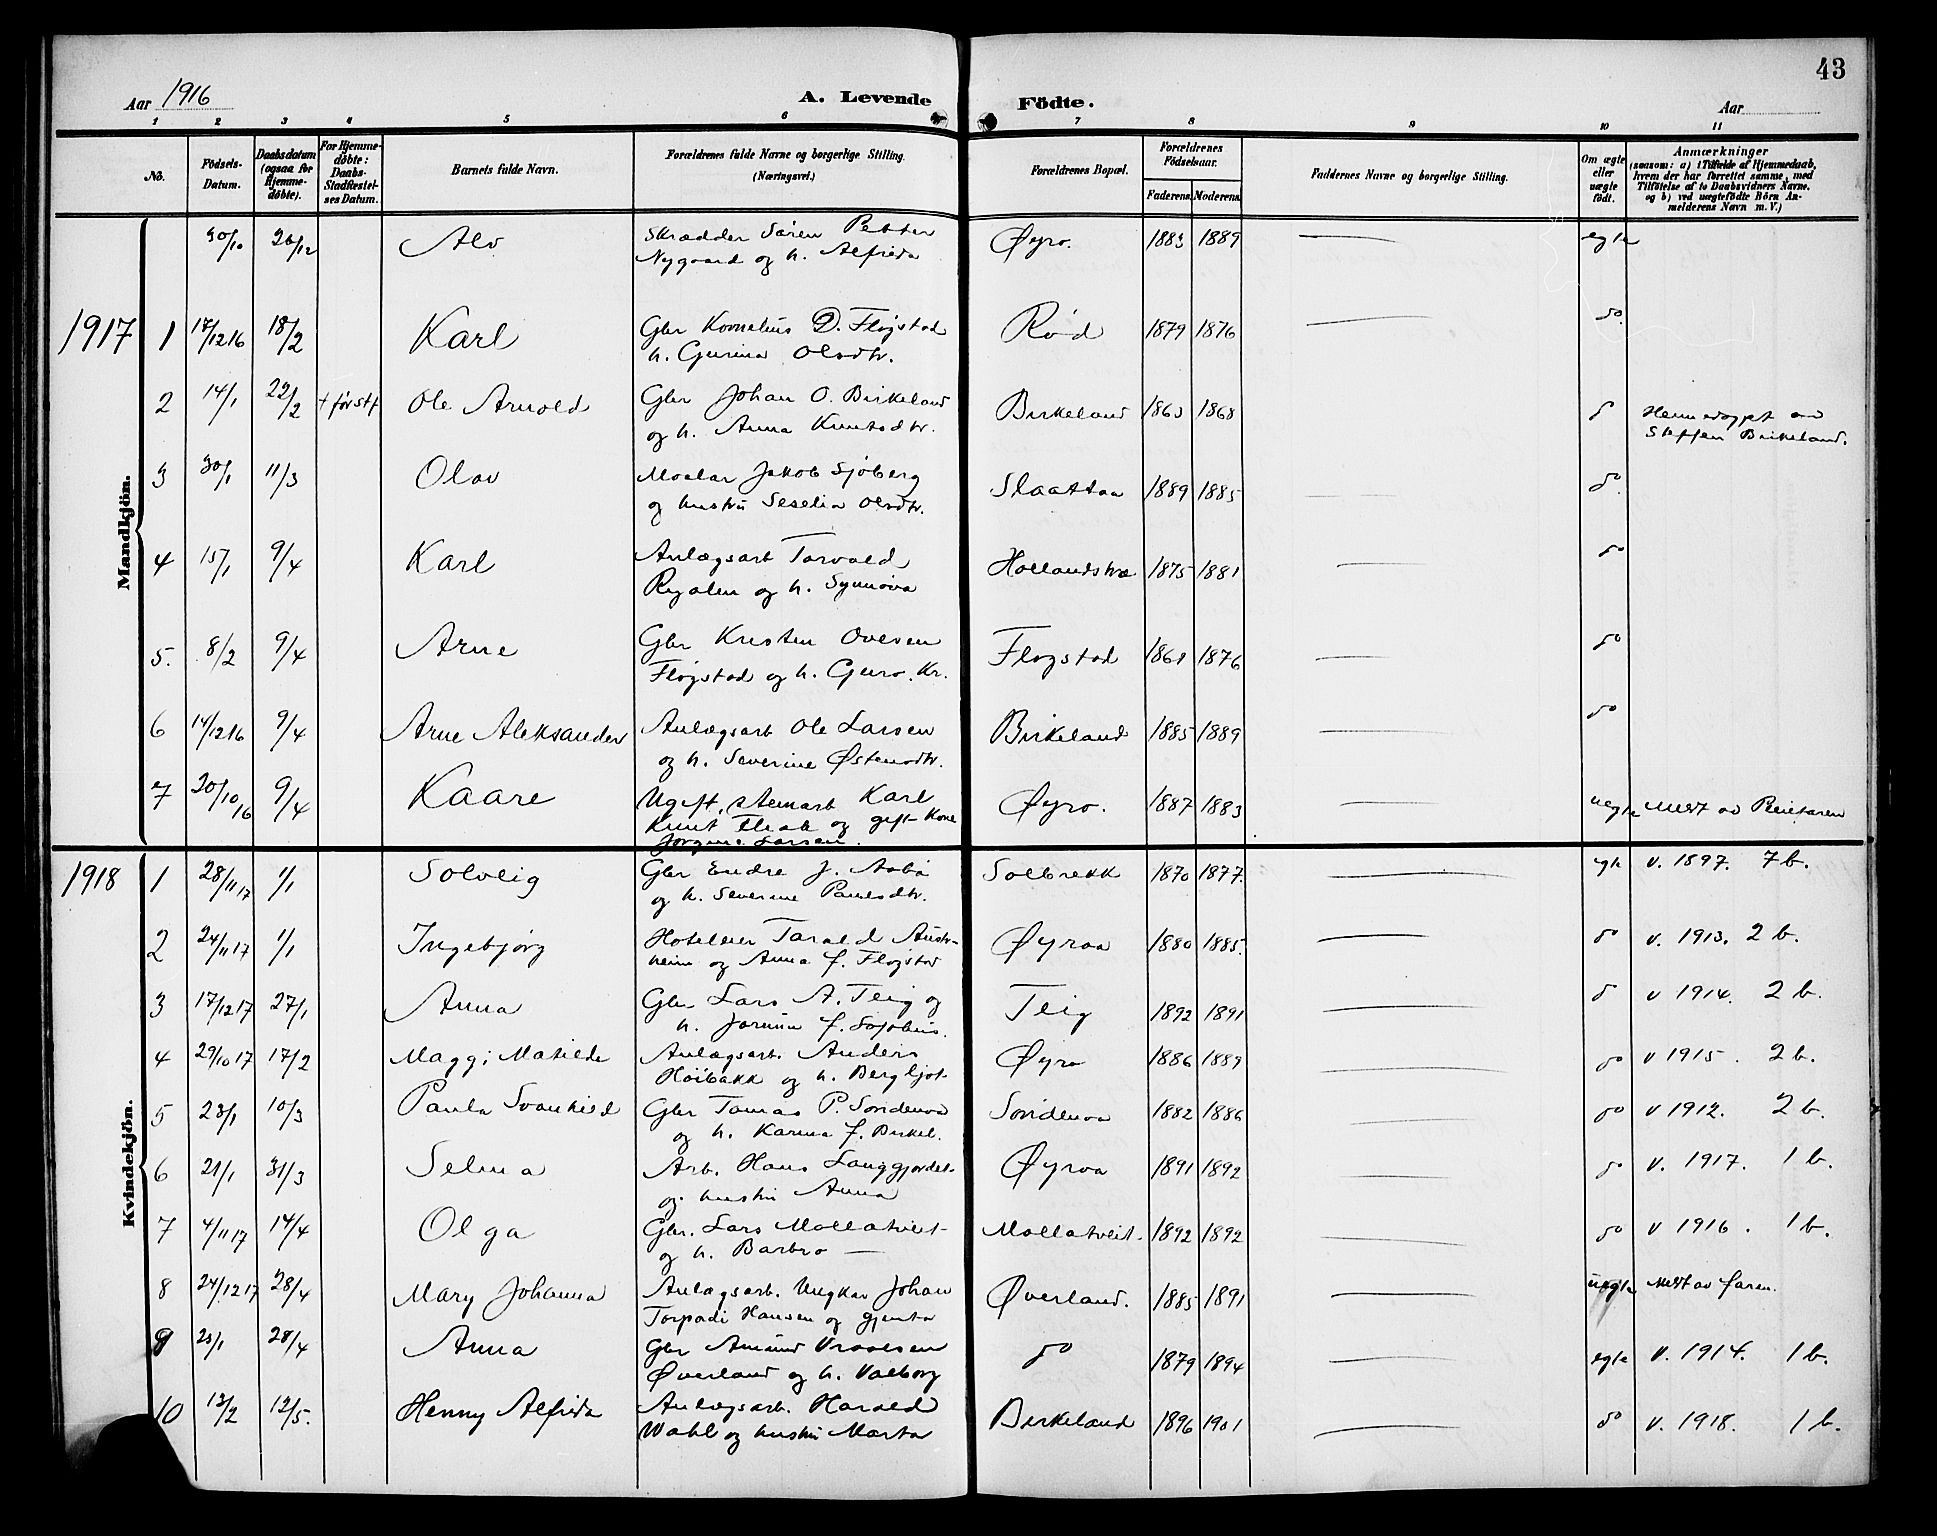 43
Aar 1916
A. Levende Födte.
Aar
1 2 3 4 5 6 7 8 9 10 11
No.
Födsels-Datum.
Daabsdatum (ogsaa for Hjemme-döbte).
For Hjemme-döbte: Daabs-Stadfæstel-ses Datum.
Barnets fulde Navn.
Forældrenes fulde Navne og borgerlige Stilling. (Næringsvei.)
Forældrenes Bopæl.
Forældrenes Födselsaar.
Faderens. Moderens.
Faddernes Navne og borgerlige Stilling.
Om ægte eller uægte födt.
Anmærkninger
(saasom: a) i Tilfælde af Hjemmedaab, hvem der har forrettet samme, med Tilföielse af to Daabsvidners Navne, og b) ved uægtefödte Börn An-melderens Navn m. V.)
Mandkjön.
30/10 26/12 Alv Skrædder Søren Petter Øyro. 1883 1889 egte
Nygaard og h. Alfrida
1917 1 17/12 16 18/2 Karl Gbr Kornelius D. Fløgstad Rød 1879 1876 do.
h. Gurina Olsdtr.
2 14/1 22/2 Ole Arnold Gbr Johan O. Birkeland Birkeland 1863 1868 d
og h. Anna Knutsdtr. Steffen Birkeland.
3 30/1 11/3 Olav Maalar Jakob Sjöberg Slaattaa 1889 1885 do.
og hustru Seselia Olsdtr.
4 15/1 9/4 Karl Anlægsarb Torvald 1875 1881 do
og h. Synnøva
5. 8/2 9/4 Arne Gbr Kristen Ovesen Fløgstad 1868 1876 do
Fløgstad og h. Guro. Kr.
6 14/12 16 9/4 Arne Aleksander Anlægsarb Ole Larsen Birkeland 1885 1889 do
og h. Severine Østensdtr.
7 20/10 16 9/4 Kaare Ugift, Karl Øyro. 1887 1883 uegte
Knut og gift Kone
Jorgine Larsen.
Kvindekjön.
1918 1 28/11 17 1/1 Solveig Gbr Endre J. Aabø Solbrekk 1870 1877. egte v. 1897. 7 b.
og h. Severine Paulsdtr.
2 24/11 17 1/1 Ingebjørg Hoteleier Tarald Aust- Øyraa 1880 1885. do v. 1913. 2 b.
heim og Anna f. Fløgstad
3 17/12 17 27/1 Anna Gbr Lars A. Teig og Teig 1892 1891 d v 1914. 2 b.
4 29/10 17 17/2 Maggi Matilde Anlægsarb. Anders Øyro 1886 1889 do v 1915. 2 b.
Høibakk og h. Bergljot
5 23/1 10/3 Paula Svanhild Gbr Tomas P. Søndenaa Søndenaa 1882 1886 do v 1912. 2 b.
og h. Karina f. Birkel.
6 21/1 31/3 Selma Arb. Hans Langgjordet Øyraa 1891 1892 do v. 1917. 1 b.
og hustru Anna
7 4/11 17 14/4 Olga Gbr. Lars Mollatveit Mollatveit. 1892 1892 do v 1916. 1 b.
og h. Barbro
8 24/12 17 28/4 Mary Johanna Anlægsarb. Ungkar Johan Øverland. 1885 1891 uegte Meldt av faren.
Torpadi Hansen og gjenta
9 23/1 28/4 Anna Gbr Amund do 1879 1894 egte v. 1914. 1 b.
Øverland og h. Valborg
10 12/2 12/5. Henny Alfrida Anlægsarb. Harald Birkeland 1896 1901 do v. 1918. 1 b.
Wahl og hustru Marta